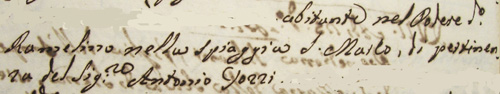 abitante nel Podere do.
Ramelino nella spiaggia S. Marco, di pertinen
za del Sigre Antonio Gozzi.